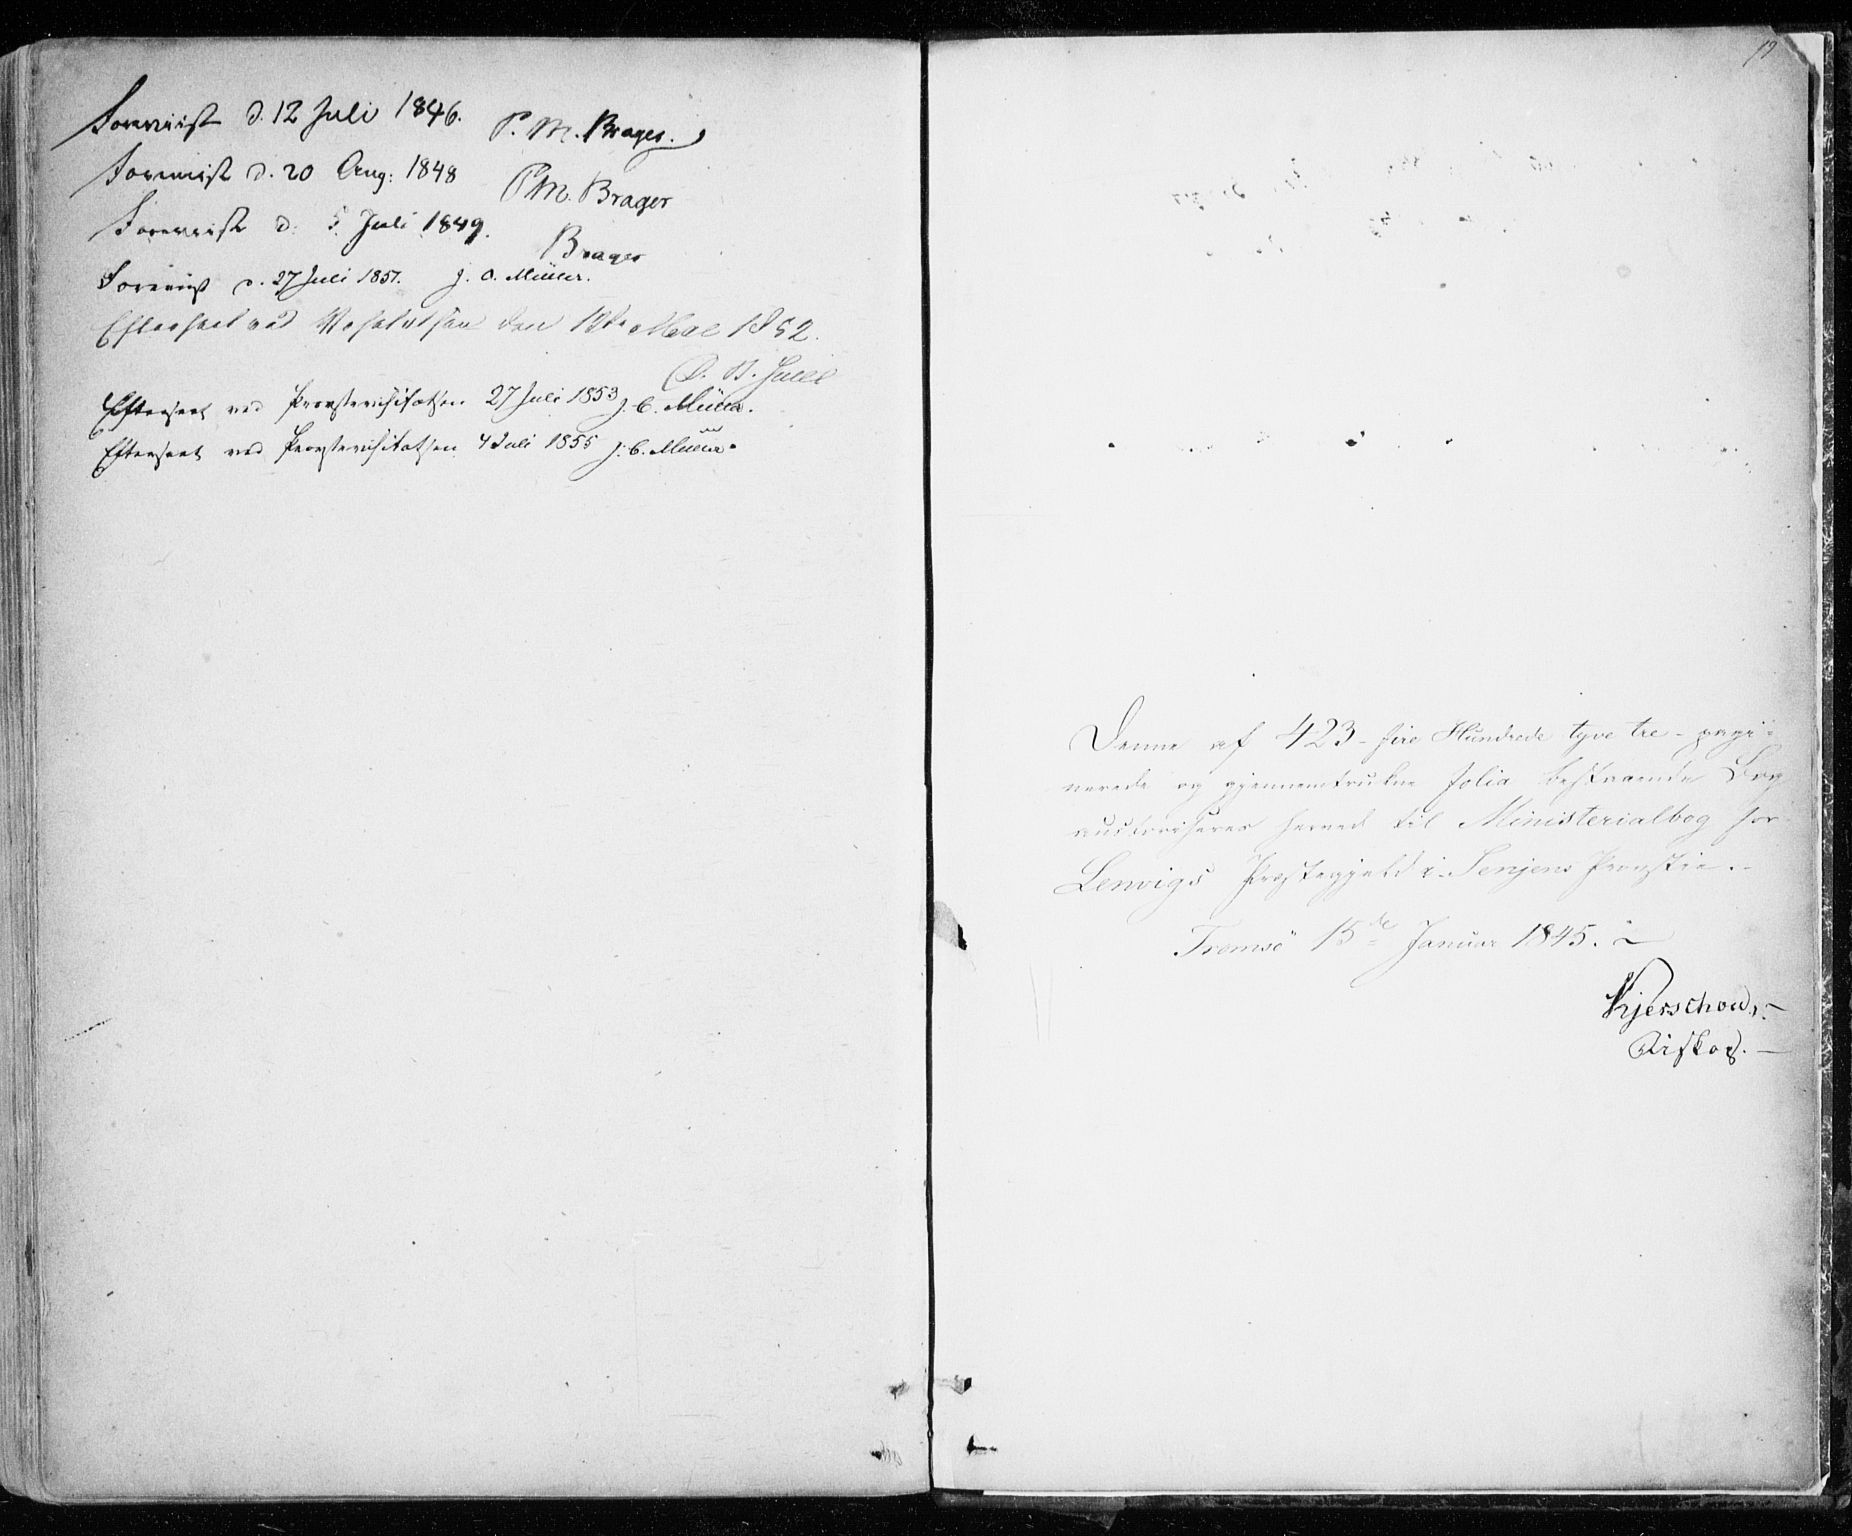 Foreviist d. 12 Juli 1846. P. M. Brager.
Foreviist d. 20 Aug: 1848 P M. Brager
Foreviist d. 5 Juli 1849. Brager
Foreviist d. 27 Juli 1851. J. C. Müller.
Efterseet ved Visitatsen den 1852.
D. B. Juell
Efterseet ved Provstevisitatsen 27 Juli 1853 J. C. Müller.
Efterseet ved Provstevisitatsen 4 Juli 1855 J. C. Müller.
Denne af 423 - fire Hundrede tyve tre - pagi-
nerede og gjennemtrukne Folia bestaaende Bog
authoriseres herved til Ministerialbog for
Lenvigs Præstegjeld i Senjens Provstie.
Tromsö 15de Januar 1845.
Kjerschow,
Biskop.